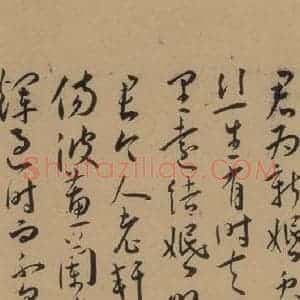 君為新婚兔
絲生有時夫
里遠結婚悠
君令人老軒
傷彼蕙蘭花
輝過時而不